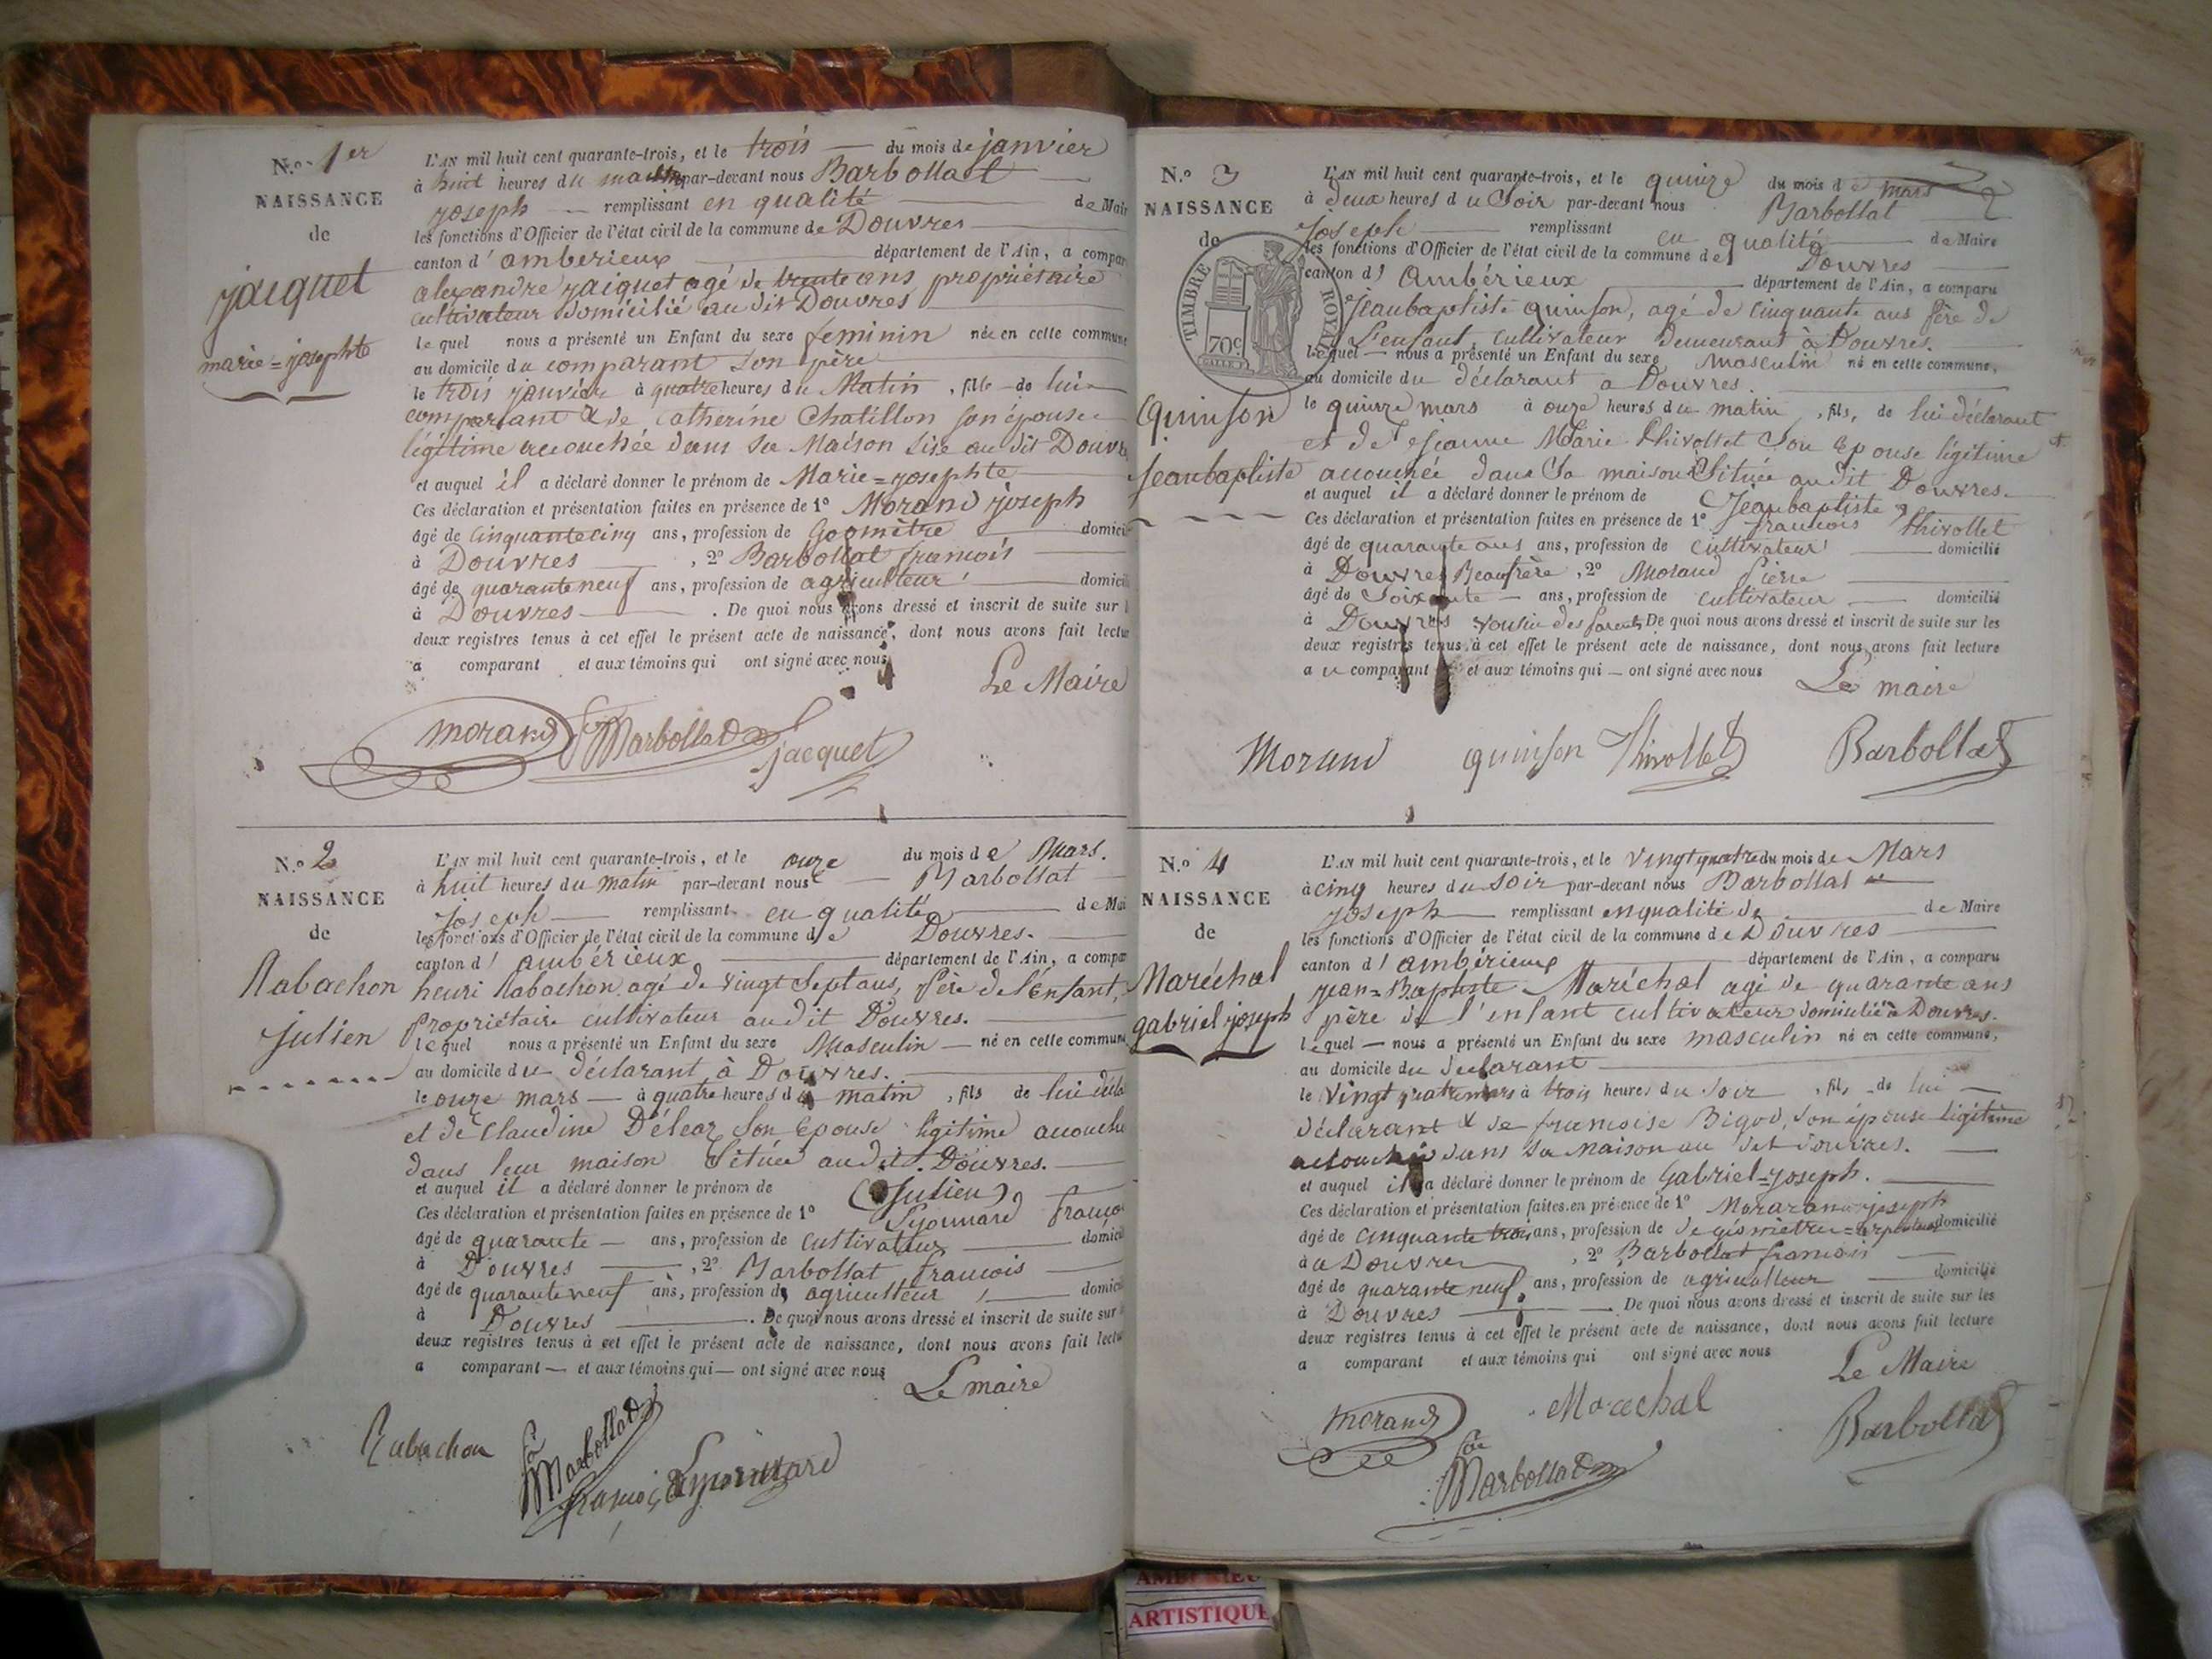 N.o 1er
NAISSANCE
de
jaiquet
marie=josephte
L'AN mil huit cent quarante-trois, et le trois — du mois de janvier
à huit heures du matin par-devant nous Barbollat
joseph — remplissant en qualité de Mair
les fonctions d'Officier de l'état civil de la commune de Douvres
canton d'amberieux département de l'Ain, a compar
alexandre jaiquet agé de trente ans propriétaire
cultivateur domicilié au dit Douvres
lequel nous a présenté un Enfant du sexe feminin née en cette commune
au domicile du comparant son père
le trois janvier à quatre heures du Matin, fille de lui
comparant & de Catherine Chatillon son épouse
légitime accouchée dans sa Maison sise au dit Douvres
et auquel il a déclaré donner le prénom de Marie=josephte
Ces déclaration et présentation faites en présence de 1° Morand joseph
âgé de cinquante cinq ans, profession de Geomètre domici
à Douvres , 2° Barbollat francois
âgé de quarante neuf ans, profession de agriculteur domicili
à Douvres . De quoi nous avons dressé et inscrit de suite sur l
deux registres tenus à cet effet le présent acte de naissance, dont nous avons fait lectur
a comparant et aux témoins qui ont signé avec nous
Le Maire
morand Barbollat jacquet
N.o 2
NAISSANCE
de
Rabachon
julien
L'AN mil huit cent quarante-trois, et le onze du mois de Mars.
à huit heures du matin par-devant nous — Barbollat
joseph — remplissant en qualité de Mai
les fonctions d'Officier de l'état civil de la commune de Douvres.
canton d'ambérieux département de l'Ain, a compar
henri Rabachon agé de vingt sept ans, père de l'enfant,
propriétaire cultivateur audit Douvres.
lequel nous a présenté un Enfant du sexe Masculin — né en cette commune
au domicile du déclarant à Douvres.
le onze mars — à quatre heures du matin, fils de lui décla
et de Claudine Déléaz son épouse légitime accouche
dans leur maison Située audit Douvres.
et auquel il a déclaré donner le prénom de (Julien)
Ces déclaration et présentation faites en présence de 1° Lyonnard françoi
âgé de quarante — ans, profession de cultivateur domicil
à Douvres , 2° Barbollat francois
âgé de quarante neuf ans, profession de agriculteur domici
à Douvres . De quoi nous avons dressé et inscrit de suite sur
deux registres tenus à cet effet le présent acte de naissance, dont nous avons fait lectu
a comparant — et aux témoins qui — ont signé avec nous
Le maire
Rabachon Barbollat
françois Lyonnard
N.o 3
NAISSANCE
de
TIMBRE ROYAL
70c
Quinson
Jeanbaptiste
L'AN mil huit cent quarante-trois, et le quinze du mois de mars
à deux heures du Soir par-devant nous Barbollat
joseph remplissant en qualité de Maire
les fonctions d'Officier de l'état civil de la commune de Douvres
canton d'Ambérieux département de l'Ain, a comparu
Jeanbaptiste quinson, agé de cinquante ans père de
L'enfant, cultivateur demeurant à Douvres.
lequel — nous a présenté un Enfant du sexe masculin né en cette commune,
au domicile du déclarant a Douvres.
le quinze mars à onze heures du matin, fils, de lui déclarant
et de Jeanne Marie Thivollet Son épouse légitime
accouchée dans Sa maison Située audit Douvres.
et auquel il a déclaré donner le prénom de (Jeanbaptiste)
Ces déclaration et présentation faites en présence de 1° francois thivollet
âgé de quarante ans ans, profession de cultivateur domicilié
à Douvres Beaufrère, 2° Morand Pierre
âgé de Soixante — ans, profession de cultivateur domicilié
à Douvres cousin des parents De quoi nous avons dressé et inscrit de suite sur les
deux registres tenus à cet effet le présent acte de naissance, dont nous avons fait lecture
au comparant et aux témoins qui — ont signé avec nous
Le maire
Morand quinson Thivollet Barbollat
N.o 4
NAISSANCE
de
Maréchal
gabriel joseph
L'AN mil huit cent quarante-trois, et le vingt quatre du mois de Mars
à cinq heures du soir par-devant nous Barbollat
joseph remplissant en qualité de de Maire
les fonctions d'Officier de l'état civil de la commune de Douvres
canton d'ambérieux département de l'Ain, a comparu
jean=Baptiste Maréchal agé de quarante ans
père de l'enfant cultivateur domicilié à Douvres.
lequel — nous a présenté un Enfant du sexe masculin né en cette commune,
au domicile du declarant
le vingt quatre mars à trois heures du soir, fils, de lui
déclarant & de francoise Bigod, son épouse légitime
accouchée dans sa maison au dit douvres.
et auquel il a déclaré donner le prénom de Gabriel=joseph.
Ces déclaration et présentation faites en présence de 1° joseph
âgé de cinquante trois ans, profession de domicilié
à a Douvres , 2° Barbollat francois
âgé de quarante neuf ans, profession de agriculteur domicilié
à Douvres . De quoi nous avons dressé et inscrit de suite sur les
deux registres tenus à cet effet le présent acte de naissance, dont nous avons fait lecture
a comparant et aux témoins qui ont signé avec nous
Le Maire
morand Marechal Barbollat
Barbollat
ARTISTIQUE